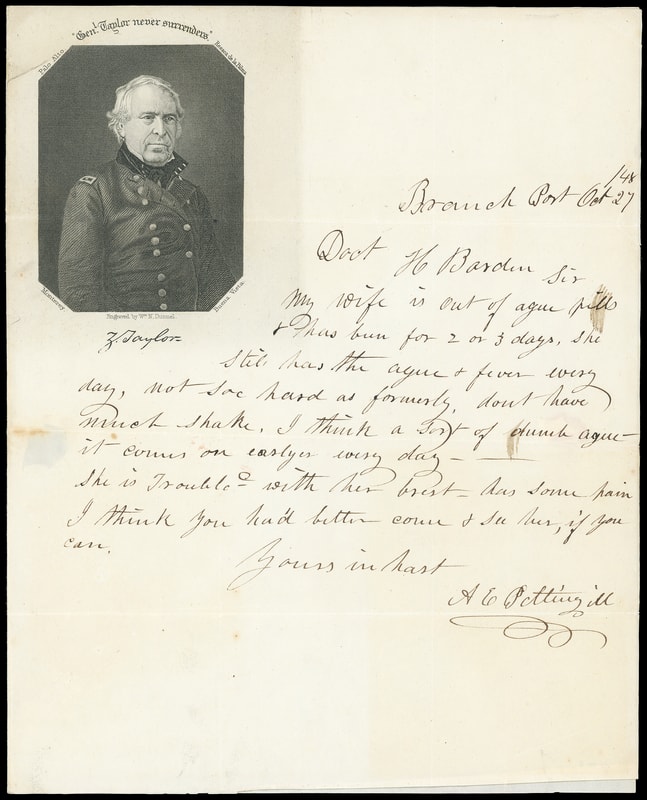 "Genl. Taylor never surrenders."
Palo Alto
Resaca de la Palma
Monterey
Buena Vista
Engraved by Wm. H. Dunnel.
Z. Taylor
/48
Branch Port Oct 27
Doct H Barden Sir
My wife is out of ague pills
& has bun for 2 or 3 days. She
Still has the ague & fever every
day, not Soe hard as formerly, dont have
much shake. I think a Sort of dumb ague
it comes on earlyer every day —
She is Troubled with her brest – has some pain
I think you had better come & see her, if you
can.
Yours in hast
A E Pettingill